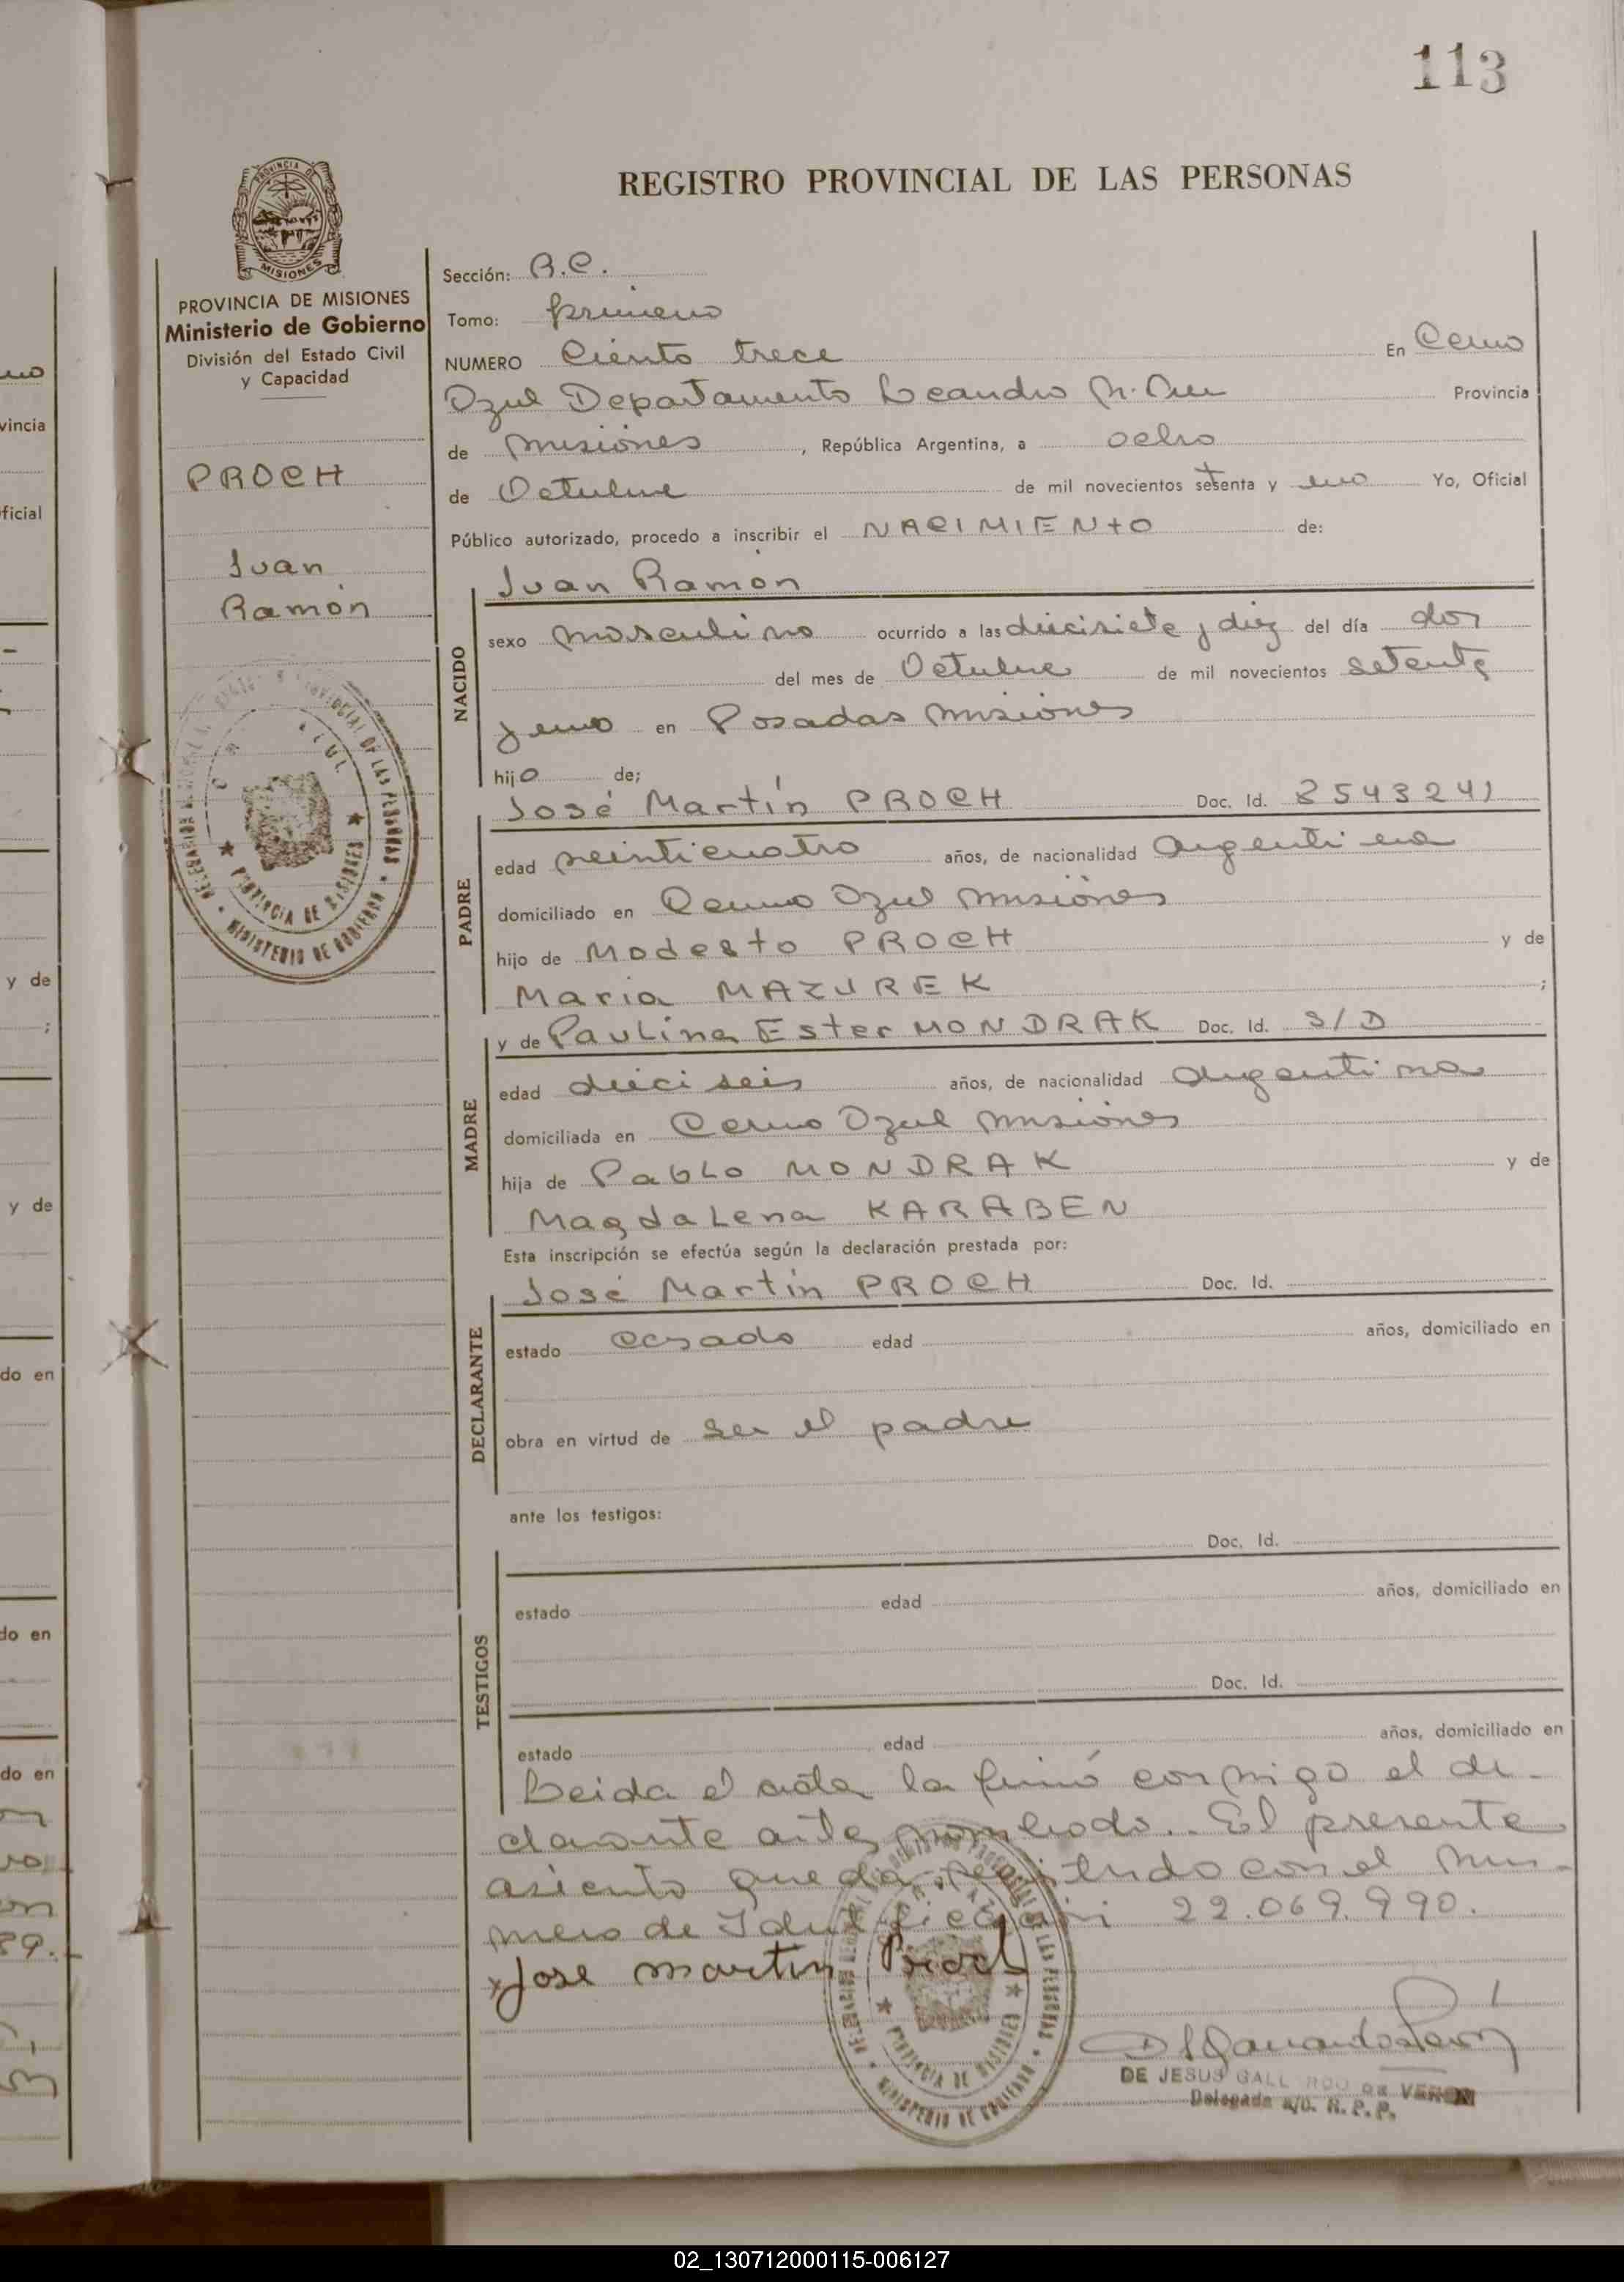 113
REGISTRO PROVINCIAL DE LAS PERSONAS
PROVINCIA DE MISIONES
Ministerio de Gobierno
División del Estado Civil
y Capacidad
PROCH
Juan
Ramón
Tomo: primero
NUMERO Ciento trece En Cerro
Azul Departamento Leandro N. Alem Provincia
de Misiones, República Argentina, a ocho
de Octubre de mil novecientos setenta y uno Yo, Oficial
Público autorizado, procedo a inscribir el NACIMIENTO de:
Juan Ramón
NACIDO
sexo masculino ocurrido a las diecisiete y diez del día dos
del mes de Octubre de mil novecientos setenta
y uno en Posadas Misiones
hijo de;
José Martín PROCH Doc. Id. 8543241
PADRE
edad veinticuatro años, de nacionalidad argentina
domiciliado en Cerro Azul Misiones
hijo de Modesto PROCH y de
Maria MAZUREK ;
y de Paulina Ester MONDRAK Doc. Id. S/D
MADRE
edad dieciseis años, de nacionalidad argentina
domiciliada en Cerro Azul Misiones
hija de Pablo MONDRAK y de
Magdalena KARABEN
Esta inscripción se efectúa según la declaración prestada por:
José Martín PROCH Doc. Id.
DECLARANTE
estado casado edad años, domiciliado en
obra en virtud de ser el padre
ante los testigos:
Doc. Id.
TESTIGOS
estado edad años, domiciliado en
Doc. Id.
estado edad años, domiciliado en
Leida el acta la firmó conmigo el de-
clarante antes nombrado.. El presente
asiento queda registrado con el nú-
mero de Identificación 22.069.990.
x Jose martin Proch
DE JESUS GALL DE VERON
Delegada a/c. R. P. P.
02_130712000115-006127